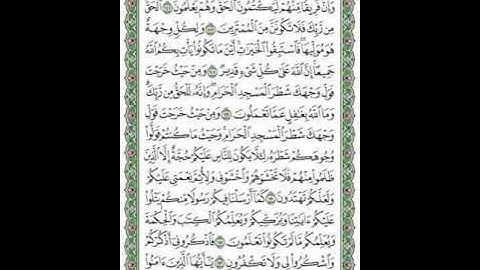 وَإِنَّ فَرِيقًا مِّنْهُمْ لَيَكْتُمُونَ الْحَقَّ وَهُمْ يَعْلَمُونَ ١٤٦ الْحَقُّ
مِن رَّبِّكَ فَلَا تَكُونَنَّ مِنَ الْمُمْتَرِينَ ١٤٧ وَلِكُلٍّ وِجْهَةٌ
هُوَ مُوَلِّيهَا فَاسْتَبِقُوا الْخَيْرَاتِ أَيْنَ مَا تَكُونُوا يَأْتِ بِكُمُ اللَّهُ
جَمِيعًا إِنَّ اللَّهَ عَلَىٰ كُلِّ شَيْءٍ قَدِيرٌ ١٤٨ وَمِنْ حَيْثُ خَرَجْتَ
فَوَلِّ وَجْهَكَ شَطْرَ الْمَسْجِدِ الْحَرَامِ وَإِنَّهُ لَلْحَقُّ مِن رَّبِّكَ
وَمَا اللَّهُ بِغَافِلٍ عَمَّا تَعْمَلُونَ ١٤٩ وَمِنْ حَيْثُ خَرَجْتَ فَوَلِّ
وَجْهَكَ شَطْرَ الْمَسْجِدِ الْحَرَامِ وَحَيْثُ مَا كُنتُمْ فَوَلُّوا
وُجُوهَكُمْ شَطْرَهُ لِئَلَّا يَكُونَ لِلنَّاسِ عَلَيْكُمْ حُجَّةٌ إِلَّا الَّذِينَ
ظَلَمُوا مِنْهُمْ فَلَا تَخْشَوْهُمْ وَاخْشَوْنِي وَلِأُتِمَّ نِعْمَتِي عَلَيْكُمْ
وَلَعَلَّكُمْ تَهْتَدُونَ ١٥٠ كَمَا أَرْسَلْنَا فِيكُمْ رَسُولًا مِّنكُمْ يَتْلُو
عَلَيْكُمْ آيَاتِنَا وَيُزَكِّيكُمْ وَيُعَلِّمُكُمُ الْكِتَابَ وَالْحِكْمَةَ
وَيُعَلِّمُكُم مَّا لَمْ تَكُونُوا تَعْلَمُونَ ١٥١ فَاذْكُرُونِي أَذْكُرْكُمْ
وَاشْكُرُوا لِي وَلَا تَكْفُرُونِ ١٥٢ يَا أَيُّهَا الَّذِينَ آمَنُوا